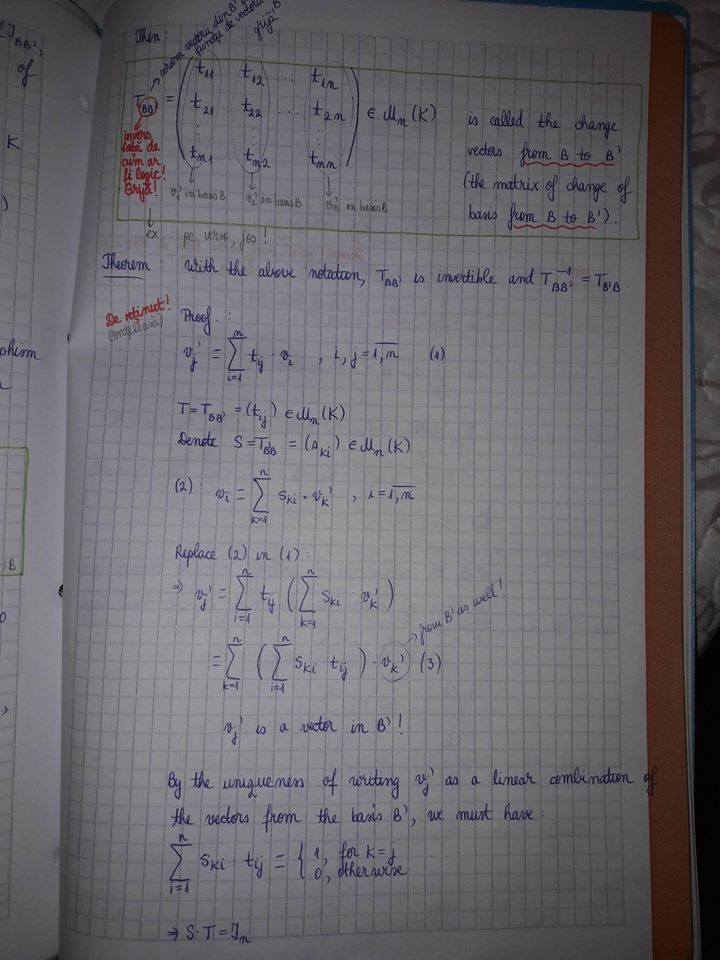 J_BB',
of
K
)
phism
)B
0
scriem vectorii din B' în
funcție de vectorii
grijă B.
Then:
T_BB' = ( t_11 t_12 ... t_1n
t_21 t_22 ... t_2n
⋮ ⋮ ⋮
t_n1 t_n2 t_nn ) ∈ M_n(K)
is called the change
vectors from B to B'
(the matrix of change of
basis from B to B').
invers
față de
cum ar
fi logic!
Grijă!
v_1' in basis B v_2' in basis B v_n' in basis B
ex: pe verso, jos!
Theorem: With the above notation, T_BB' is invertible and T_BB'^-1 = T_B'B.
De reținut!
Proof:
v_j' = Σ_{i=1}^{n} t_ij · v_i , i, j = 1,n (1)
T = T_BB' = (t_ij) ∈ M_n(K)
Denote S = T_B'B = (s_ki) ∈ M_n(K)
(2): v_i = Σ_{k=1}^{n} s_ki · v_k' , i = 1,n
Replace (2) in (1):
⇒ v_j' = Σ_{i=1}^{n} t_ij ( Σ_{k=1}^{n} s_ki v_k' )
from B' as well!
= Σ_{k=1}^{n} ( Σ_{i=1}^{n} s_ki · t_ij ) · v_k' (3)
v_j' is a vector in B'!
By the uniqueness of writing v_j' as a linear combination of
the vectors from the basis B', we must have:
Σ_{i=1}^{n} s_ki · t_ij = { 1, for k=j
0, otherwise
⇒ S·T = I_n